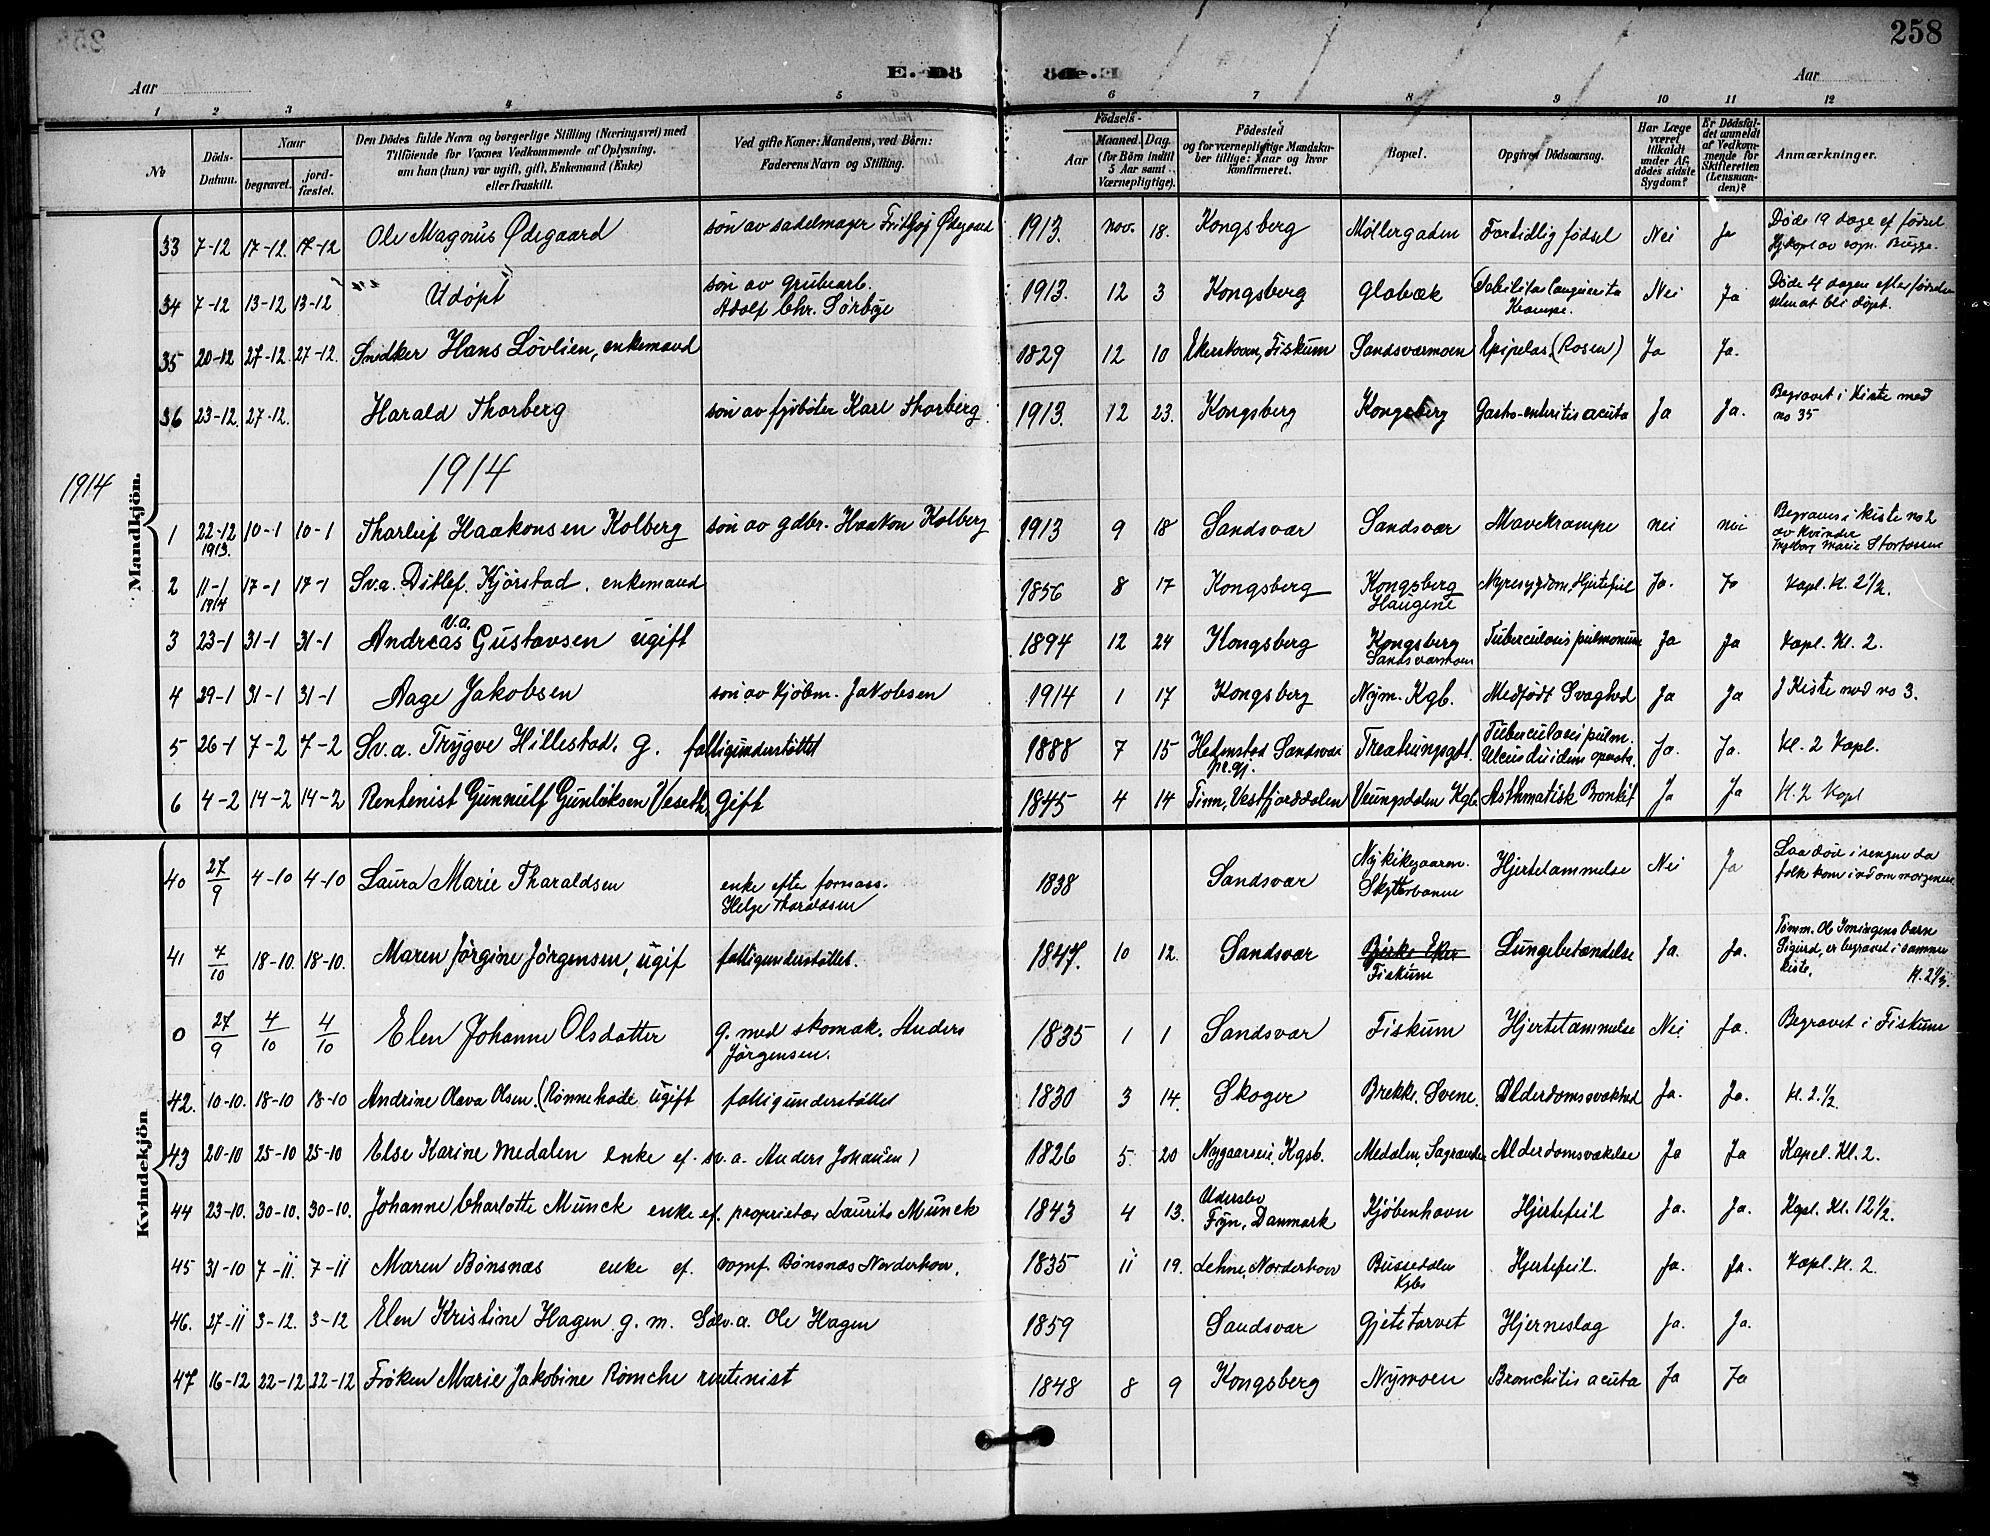 258
Aar
E. Dö
de.
Aar
1 2 3 4 5 6 7 8 9 10 11 12
No
Döds-Datum.
Naar
begravet.
jordfæstet.
Den Dödes fulde Navn og borgerlige Stilling (Næringsvei) med
Tilföiende for Voxnes Vedkommende af Oplysning,
om hun (hun) var ugift, gift, Enkemand (Enke)
eller fraskilt.
Ved gifte Koner: Mandens, ved Börn:
Faderens Navn og Stilling.
Födsels-
Aar
Maaned. Dag.
(for Börn indtil
5 Aar samt
Værnepligtige).
Födested
og for værnepligtige Mandskaber tillige: Naar og hvor
konfirmeret.
Bopæl.
Opgiven Dödsaarsag.
Har Læge
været
tilkaldt
under Afdödes sidste
Sygdom?
Er Dödsfaldet anmeldt
af Vedkommende for
Skifteretten
(Lensmanden)?
Anmærkninger.
Mandkjön.
33 7-12 17-12. 17-12 Ole Magnus Ødegaard søn av sadelmager Frithjof Ødegaard 1913. nov. 18. Kongsberg Möllergaden Fortidlig födsel Nei Ja Døde 19 dage ef. födsel
Hj.døpt av sogn. Bugge.
34 7-12 13-12 13-12 Udöpt søn av grubearb.
Adolf Chr. Sörbye 1913. 12 3 Kongsberg Glabæk Debilitas congenita
Krampe. Nei Ja Døde 4 dagen efter födselen
uten at bli döpt.
35 20-12 27-12 27-12. Snedker Hans Lövlien, enkemand 1829 12 10 Ekerskoven, Fiskum Sandsværmoen Epipelas (Rosen) Ja Ja.
36 23-12. 27-12. Harald Thorberg søn av fyrböter Karl Thorberg 1913. 12 23. Kongsberg Kongsberg Gastro-enteritis acuta Ja Ja. Begravet i Kiste med
no 35
1914
1914
1 22-12
1913. 10-1 10-1 Tharleif Haakonsen Kolberg søn av gdbr. Haakon Kolberg 1913 9 18 Sandsvær Sandsvær Mavekrampe nei nei Begraves i kiste no 2
av kvinder
Ingeborg Marie Stortossen
2 11-1
1914 17-1 17-1 Sv.a. Ditlef Kjörstad, enkemand 1856 8 17 Kongsberg Kongsberg
Haugene Nyresygdom, Hjertefeil Ja. Ja Kapl. Kl. 2 1/2.
3 23-1 31-1 31-1 v.a.
Andreas Gustavsen ugift 1894 12 24 Kongsberg Kongsberg
Sandsværmoen Tuberculosis pulmonum Ja Ja Kapl. Kl. 2.
4 29-1 31-1 31-1 Aage Jakobsen søn av Kjöbm. Jakobsen 1914 1 17 Kongsberg Nym. Kgb. Medfödt Svaghed Ja Ja I Kiste med no 3.
5 26-1 7-2 7-2 Sv.a. Trygve Hillestad. g. fattigunderstöttet 1888 7 15 Hedenstad Sandsvær
pr.gj. Tuberculosis pulm.
Ulcus duodeni operata. Ja. Ja. Kl. 2 Kapl.
6 4-2 14-2 14-2 Rentenist Gunnulf Gunleiksen Veseth, gift 1845 4 14 Tinn, Vestfjorddalen Veungsdalen Kgb. Asthmatisk Bronkit Ja Ja Kl. 2 Kapl
Kvindekjön
40 27/9 4-10 4-10 Laura Marie Tharaldsen enke efter fornass.
Helge Tharaldsen 1838 Sandsvær Nykirkegaarden.
Skytterbanen Hjertelammelse Nei Ja Laa död i sengen da
folk kom ind om morgenen.
41 4/10 18-10. 18-10. Maren Jörgine Jörgensen, ugif fattigunderstöttet. 1847. 10 12. Sandsvær Bjerke Eker
Fiskum Lungebetændelse Ja. Ja. Tömm. Ol. Imingens barn
Sigurd, er begravet i samme
kiste. Kl. 2 1/2.
0 27/9 4/10 4/10 Elen Johanne Olsdatter g. med skomak. Anders
Jörgensen. 1835 1 1 Sandsvær Fiskum Hjertelammelse Nei. Ja. Begravet i Fiskum
42. 10-10. 18-10 18-10 Andrine Olava Olsen. (Rönnehode ugift fattigunderstöttet 1830 3 14. Skoger Brekke. Svene. Alderdomssvakhed Ja. Ja. Kl. 2. 1/2.
43 20-10 25-10 25-10 Else Karine Medalen enke ef. sv.a. Anders Johansen) 1826 5. 20 Nygaarsvei, Kgsb. Medalen, Sagrenden Alderdomsvakelse Ja Ja Kapel. Kl. 2.
44 23-10. 30-10. 30-10. Johanne Charlotte Munck enke ef. proprietær Laurits Munck 1843 4 13. Uderslev
Fyn, Danmark Kjöbenhavn Hjertefeil Ja. Ja. Kapl. Kl. 12 1/2.
45 31-10 7-11. 7-11 Maren Bönsnæs enke ef. sognf. Bönsnæs Norderhov. 1835 11 19. Lehne, Norderhov Bussedalen
Kgbr Hjertefeil. Ja. Ja. Kapl. Kl. 2.
46. 27-11 3-12. 3-12 Elen Kristine Hagen g. m. Sölv.a. Ole Hagen 1859 Sandsvær Gjetetorvet Hjerneslag Ja. Ja.
47 16-12 22-12 22-12 Fröken Marie Jakobine Römche rentenist 1848 8 9 Kongsberg Nymoen Bronchitis acuta Ja Ja